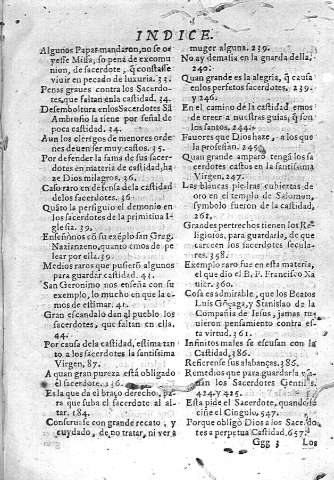 INDICE.
Algunos Papas mandaron, no se o-
yesse Missa, so pena de excomu
nion, de sacerdote, q̃ constasse
viuir en pecado de luxuria. 33.
Penas graues contra los Sacerdo-
tes, que faltan en la castidad. 34.
Desemboltura en los Sacerdotes Sã
Ambrosio la tiene por señal de
poca castidad. 34.
Aun los clerigos de menores orde
nes deuen ser muy castos. 35.
Por defender la fama de sus sacer-
dotes en materia de castidad, ha-
ze Dios milagros. 36.
Caso raro en defensa de la castidad
de los sacerdotes. 36
Quãto la persiguio el demonio en
los sacerdotes de la primitiua I-
glesia. 39.
Enseñonos cõ su exẽplo san Greg.
Nazianzeno, quanto emos de pe
lear por ella. 39.
Medios raros que pusierõ algunos
para guardar castidad. 43.
San Geronimo nos enseña con su
exemplo, lo mucho en que la e-
mos de estimar. 41.
Gran escandalo dan al pueblo los
sacerdotes, que faltan en ella.
44.
Por causa dela castidad, estima tan
to a los sacerdotes la santissima
Virgen, 87.
A quan gran pureza está obligado
el sacerdote. 136.
Es la que da el braço derecho, pa-
ra que suba el sacerdote al al-
tar. 184.
Conserua se con grande recato, y
cuydado, de no tratar, ni ver a
muger alguna. 239.
No ay demasia en la guarda della.
240.
Quan grande es la alegria, q̃ causa
en los perfetos sacerdotes. 239.
y 246.
En el camino de la castidad emos
de creer a nuestras guias, q̃ son
los santos. 244.
Fauores que Dios haze, a los que
la professan. 245.
Quan grande amparo tengã los sa
cerdotes castos en la santissima
Virgen, 247.
Las blancas piedras cubiertas de
oro en el templo de Salomon,
symbolo fueron de la castidad,
261.
Grandes pertrechos tienen los Re
ligiosos, para guardarla, de que
carecen los sacerdotes secula-
res. 358.
Exemplo raro fue en esta materia,
el que dio el B. P. Francisco Xa
uier. 360.
Cosa es admirable, que los Beatos
Luis Gõçaga, y Stanislao de la
Compañia de Iesus, jamas tu-
uieron pensamiento contra es-
ta virtud. 361.
Infinitos males se escusan con la
Castidad, 386.
Refierense sus alabanças. 386.
Remedios que para guardarla v-
sauan los Sacerdotes Gentiles.
424, y 425.
Esta pide el Sacerdote, quando se
ciñe el Cingulo, 547.
Porque obligò Dios a los Sacerdo
tes a perpetua Castidad. 657.
Ggg 3 Los